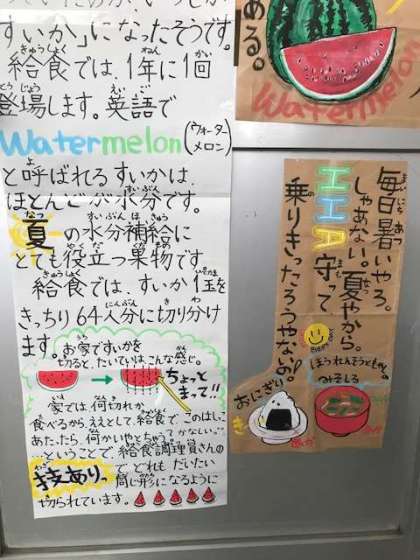 すいか」になったそうです。
給食では、1年に1回
登場します。英語で
Watermelon(ウォーターメロン)
と呼ばれるすいかは、
ほとんどが水分です。
夏の水分補給に
とても役立つ果物です。
給食では、すいか1玉を
きっちり64人分に切り分け
ます。お家ですいかを
切ると、たいていはこんな感じ。
ちょっと
まって!!
家では、何切れか
食べるから、ええとして、給食で、このはしこ
あたったら、何かいやとちゃうてかなしい…
…ということで、給食調理員さんの
技ありっ
で、どれも、だいたい
同じ形になるように
切られています。
ある。
Watermelon
毎日暑いやろ。
しゃあない。夏やから。
HHA守って
乗りきったろうやないの!
おにぎり
ほうれんそうともやしの
みそしる